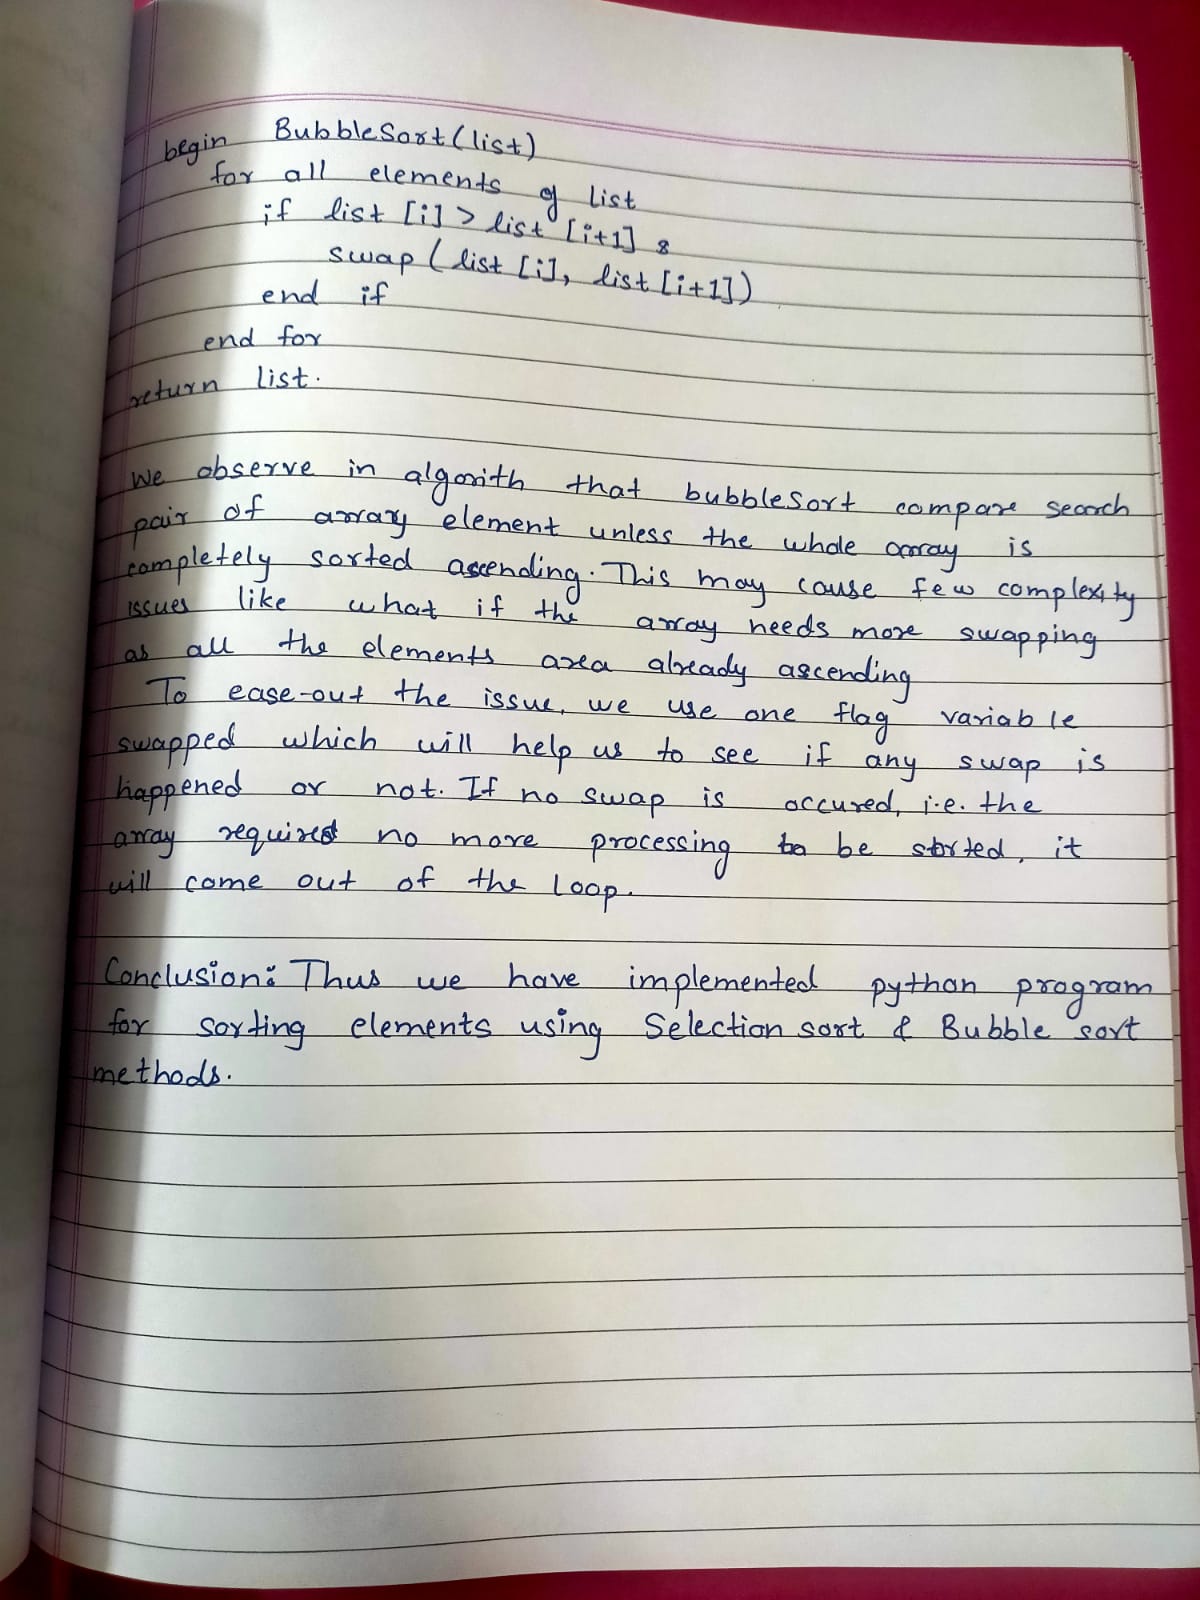 begin BubbleSort(list)
for all elements of list
if list [i] > list [i+1] :
swap ( list [i], list [i+1])
end if
end for
return list.
We observe in algorith that bubbleSort compare search
pair of array element unless the whole array is
completely sorted ascending. This may cause few complexity
issues like what if the array needs more swapping
as all the elements area already ascending
To ease-out the issue, we use one flag variable
swapped which will help us to see if any swap is
happened or not. If no swap is occured, i.e. the
array requires no more processing to be sorted, it
will come out of the loop.
Conclusion: Thus we have implemented python program
for sorting elements using Selection sort & Bubble sort
methods.